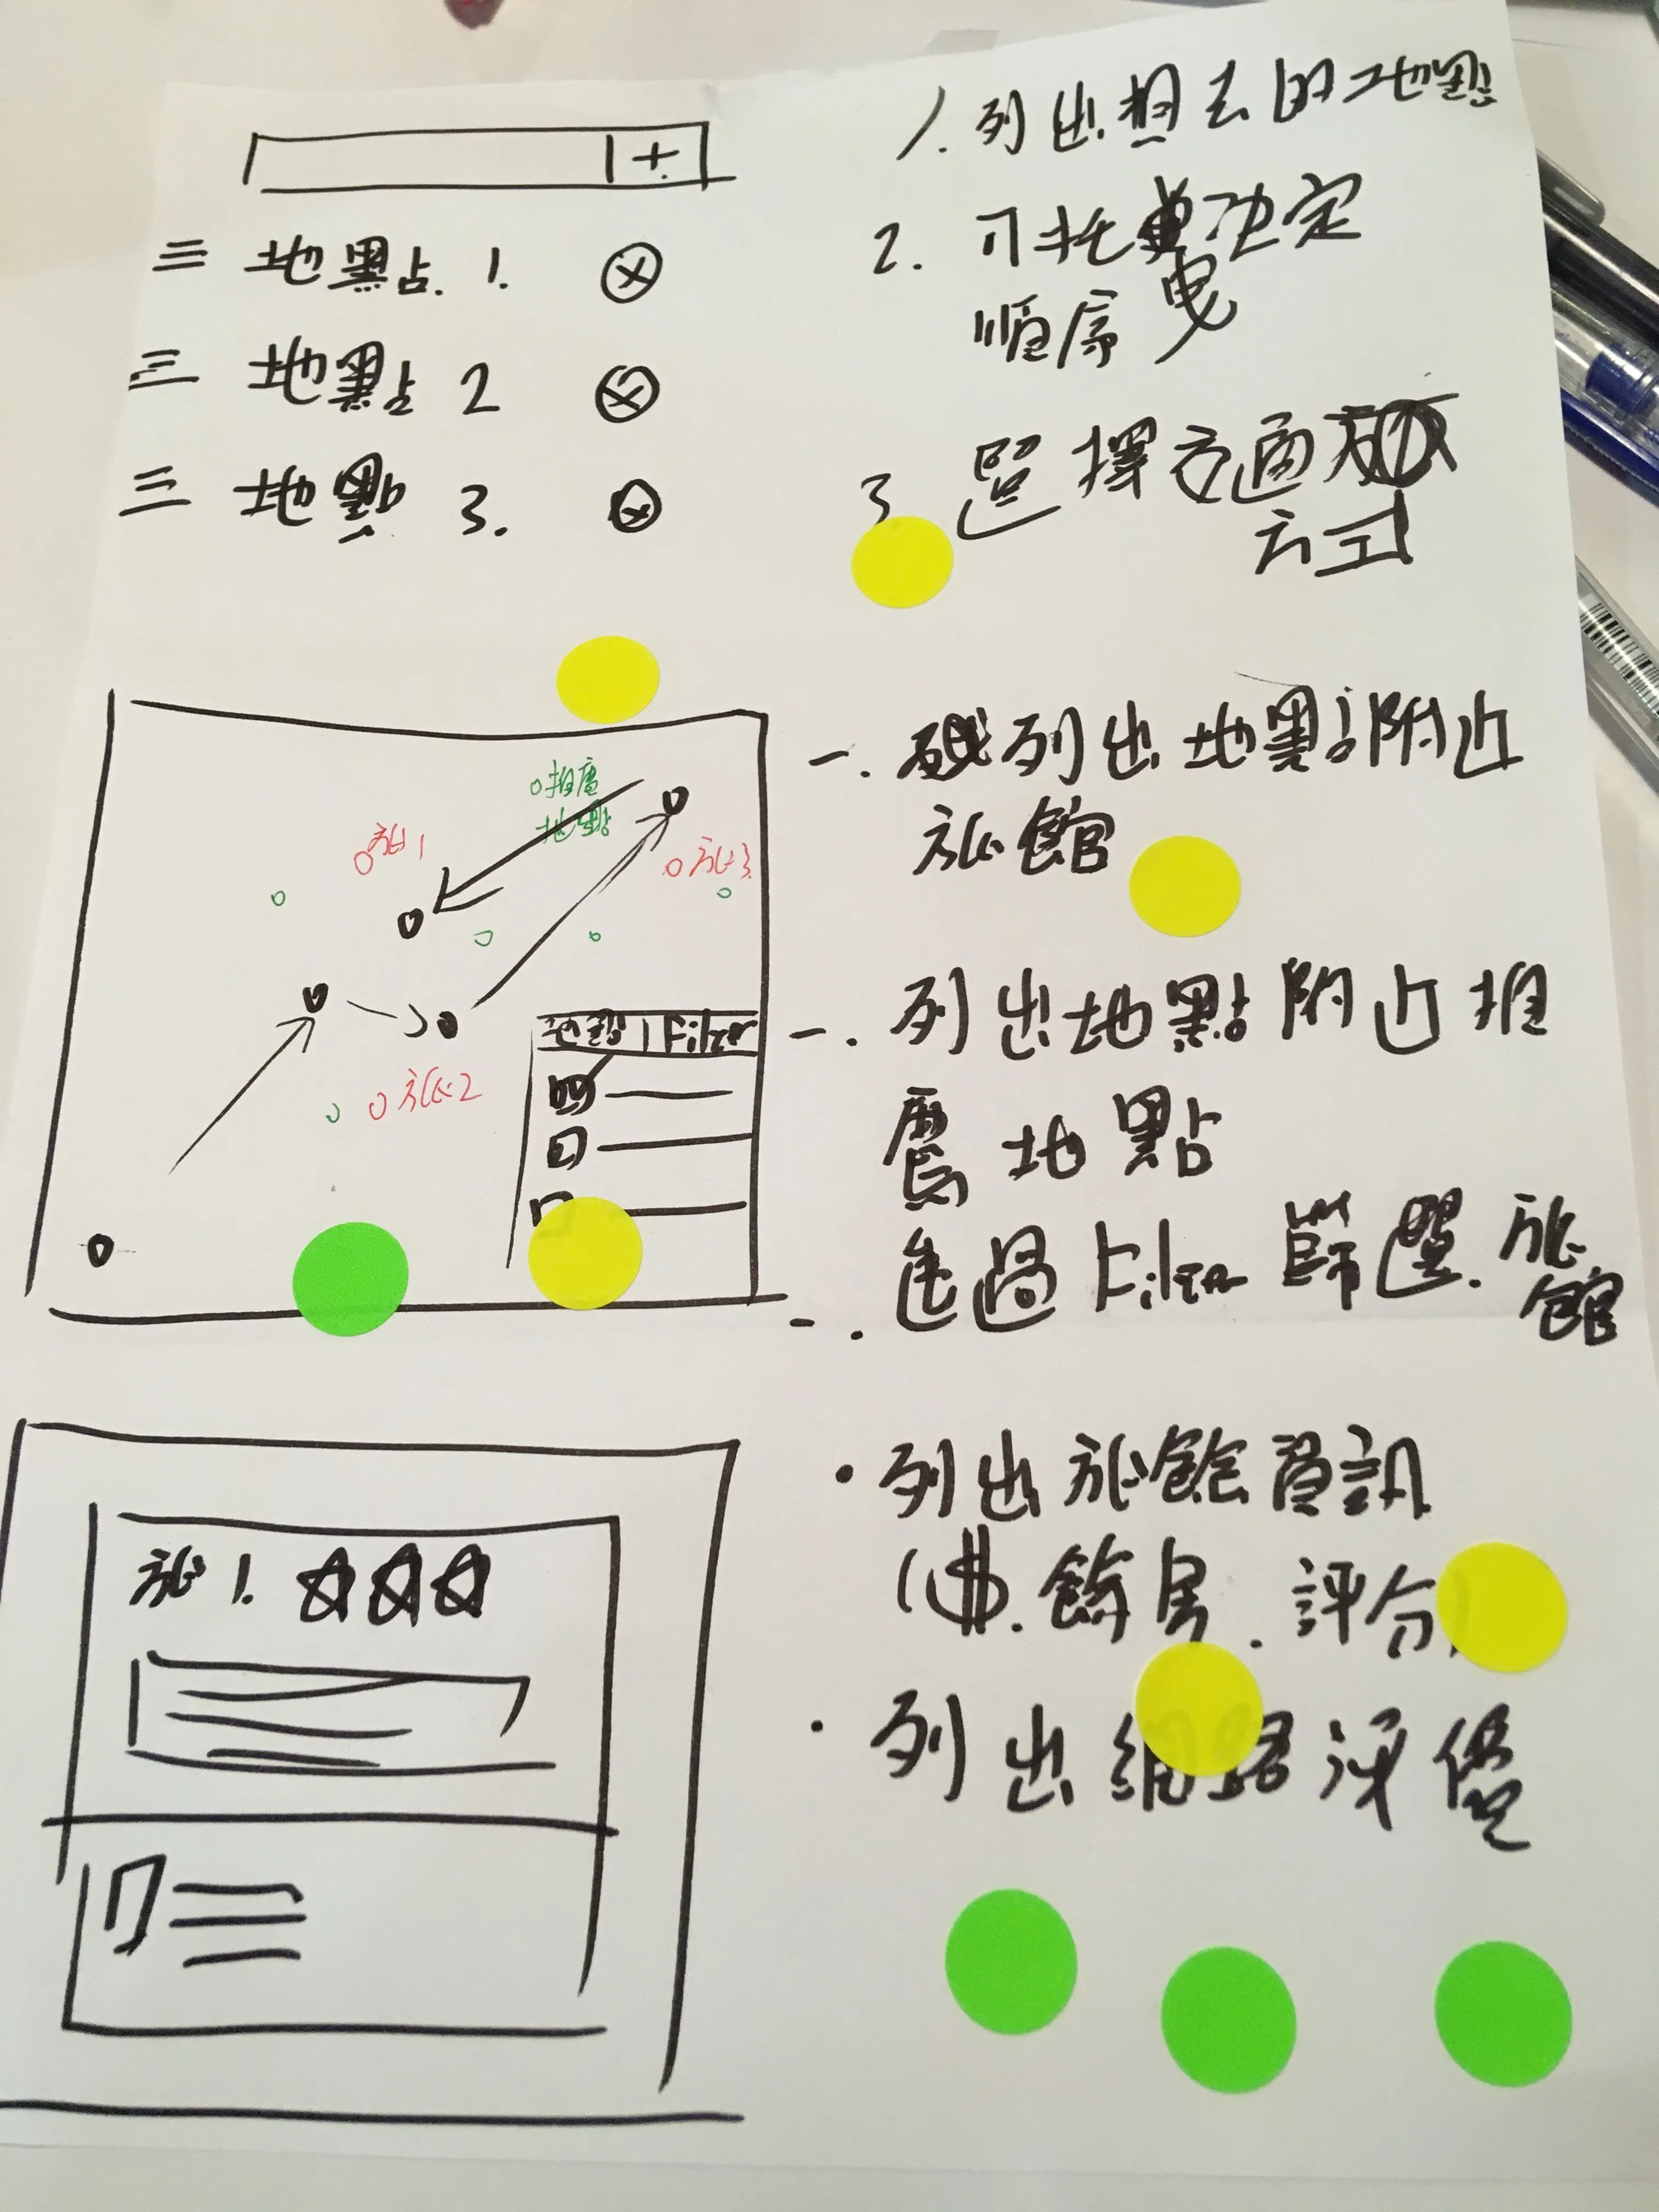 +
三 地點 1. ⓧ
三 地點 2 ⓧ
三 地點 3. ⓧ
1. 列出想去的地點
2. 可拖曳決定
順序
3. 選擇交通
方式
推薦
地點
旅1
旅3
旅2
地點1 Filter
一. 列出地點附近
旅館
一. 列出地點附近推
薦地點
一. 透過Filter 篩選. 旅
館
旅1. ☆☆☆
• 列出旅館資訊
($. 餘房. 評分)
• 列出網路評價